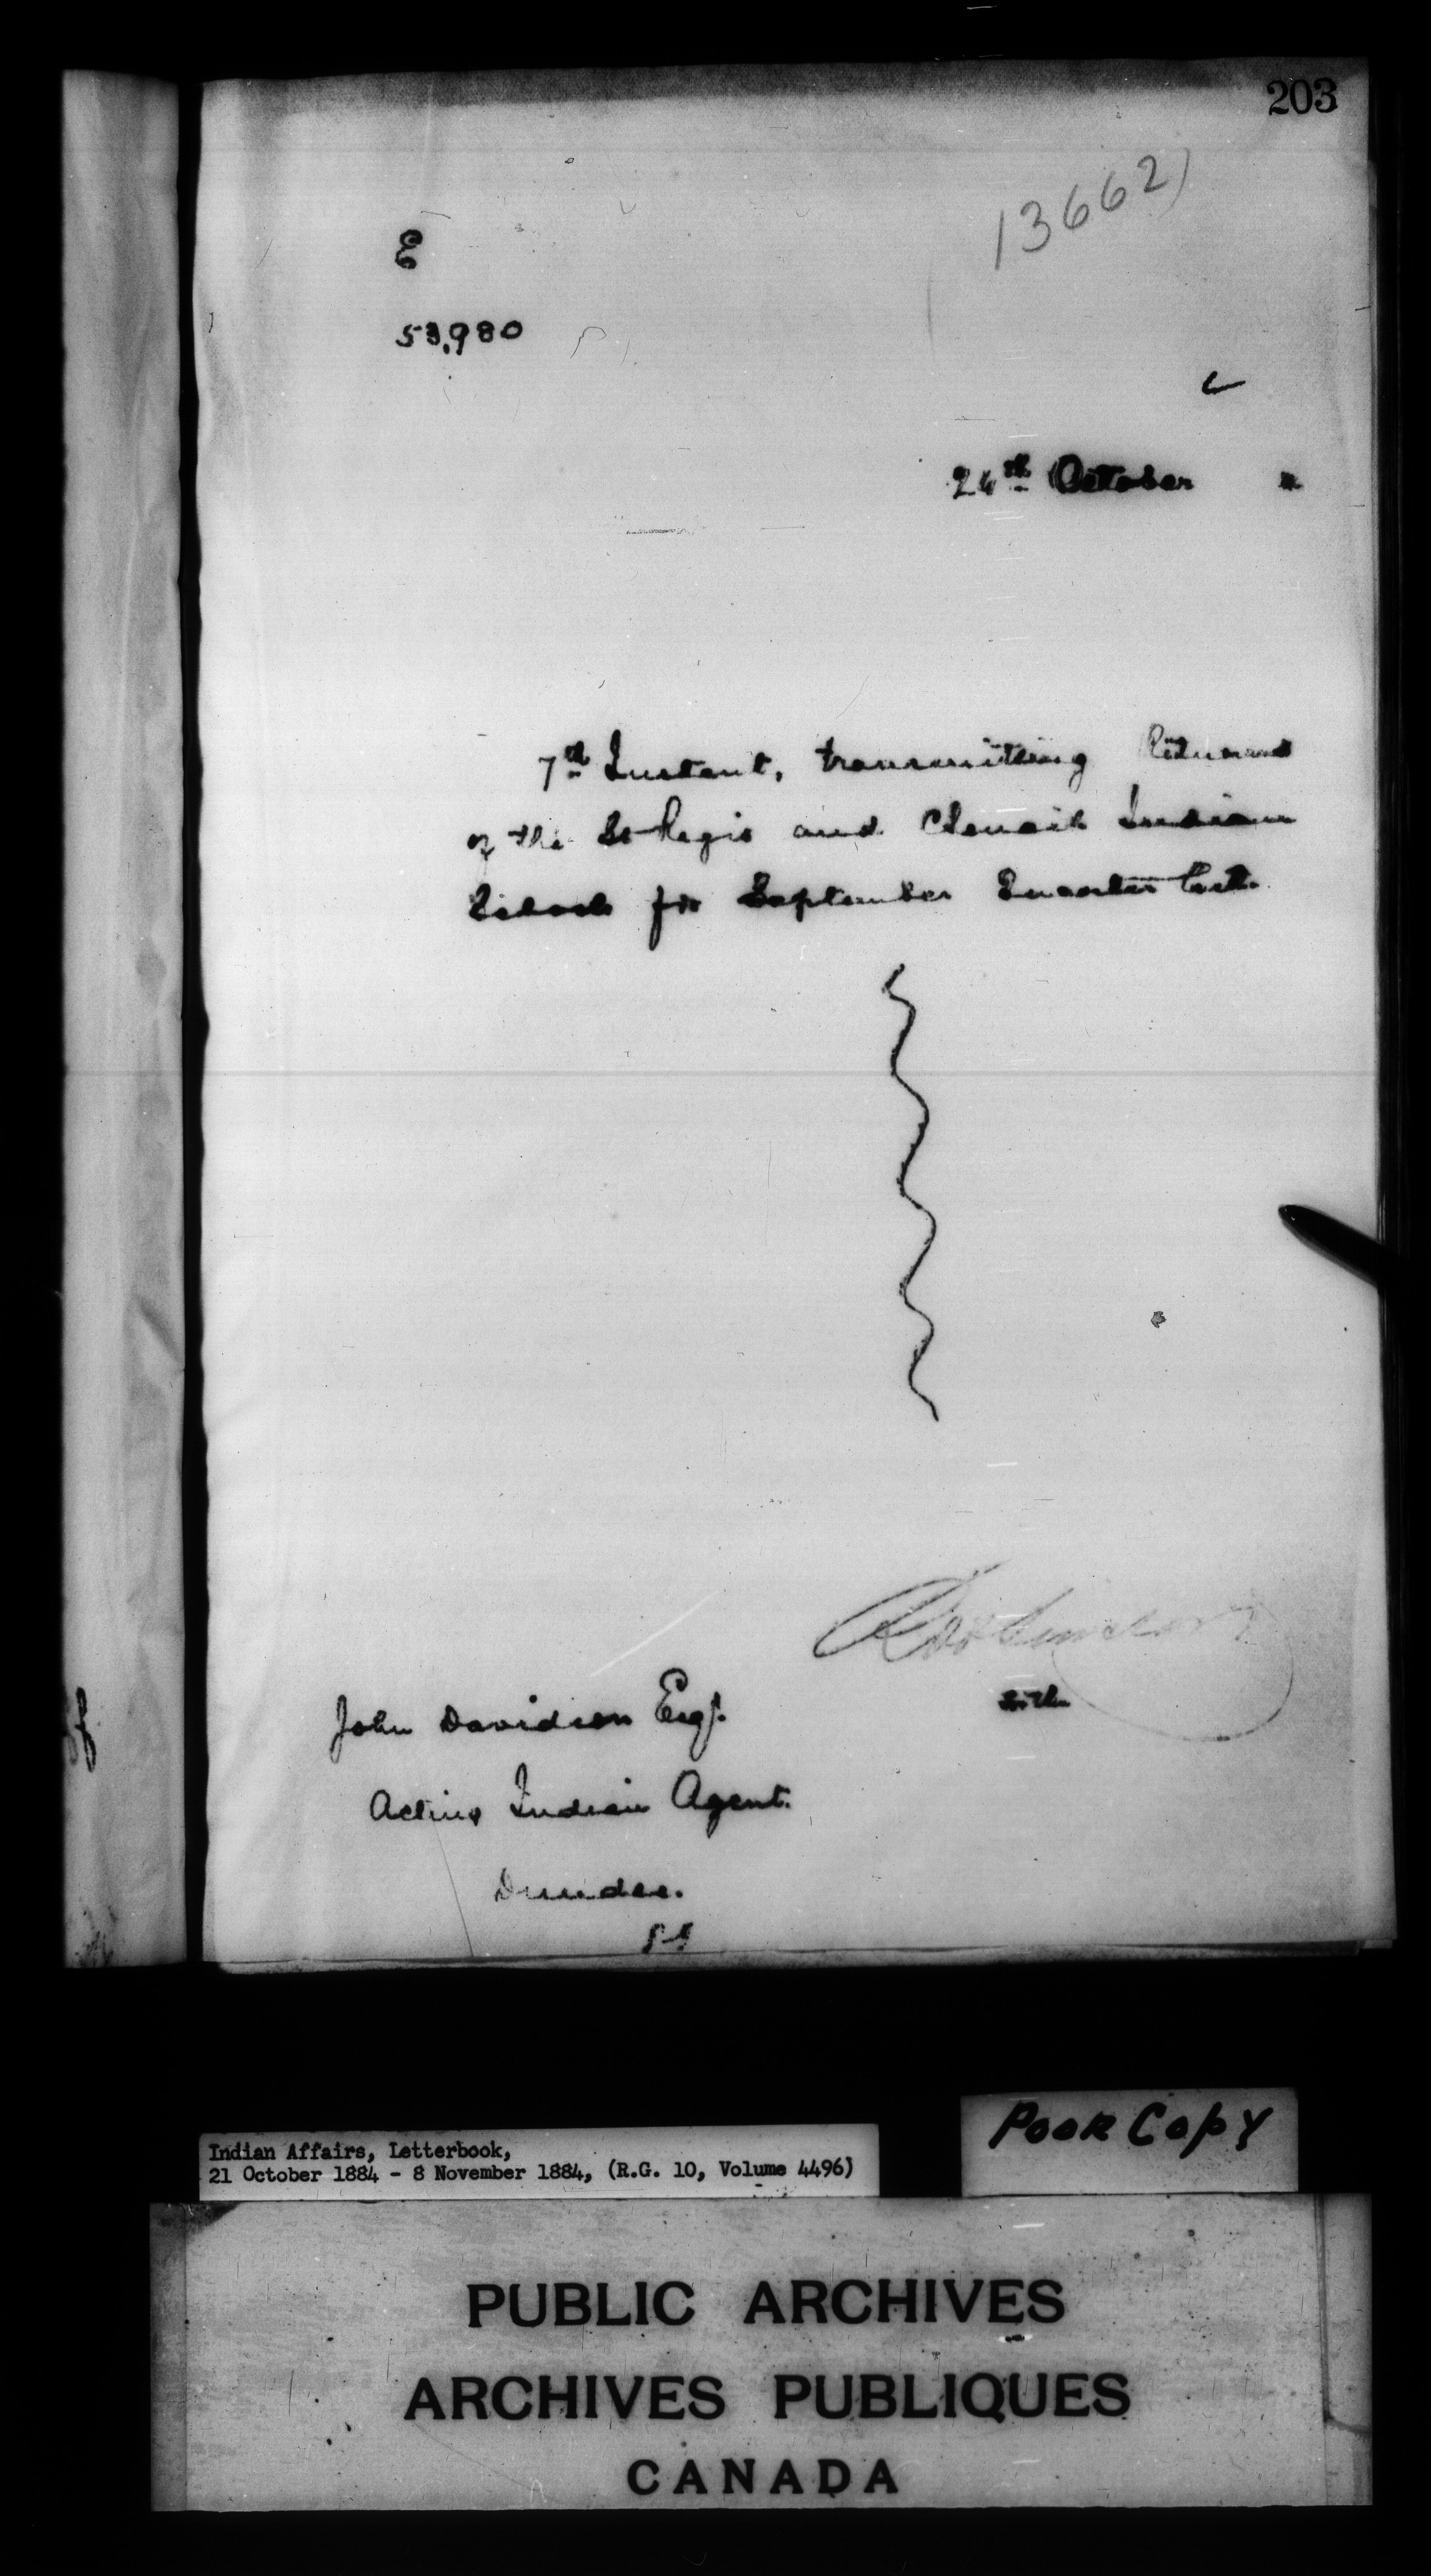 203
13662)
E
53,980
24th October
7th Instant, transmitting Returns
of the St Regis and Chenail Indian
Schools for September Quarter last.
John Davidson Esqr.
Acting Indian Agent.
Dundee.
Poor Copy
Indian Affairs, Letterbook,
21 October 1884 - 8 November 1884, (R.G. 10, Volume 4496)
PUBLIC ARCHIVES
ARCHIVES PUBLIQUES
CANADA